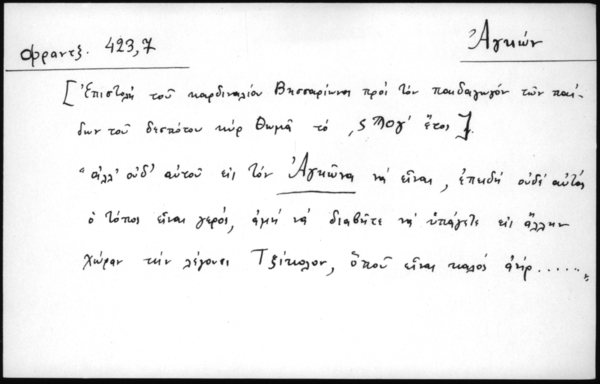 Φραντζ. 423,7
Ἀγκών
[Ἐπιστολὴ τοῦ καρδιναλίου Βησσαρίωνος πρὸς τὸν παιδαγωγόν τῶν παί-
δων τοῦ δεσπότου κὺρ Θωμᾶ τὸ ͵ϛ Ϡογ' ἔτος].
"ἀλλ' οὐδ' αὐτοῦ εἰς τὸν Ἀγκῶνα νὰ εἶναι, ἐπειδὴ οὐδὲ αὐτὸς
ὁ τόπος εἶναι γερός, ἀμὴ νὰ διαβῆτε νὰ ὑπάγετε εἰς ἄλλην
χώραν τὴν λέγουσι Τζίκολον, ὅπου εἶναι καλὸς ἀήρ......"